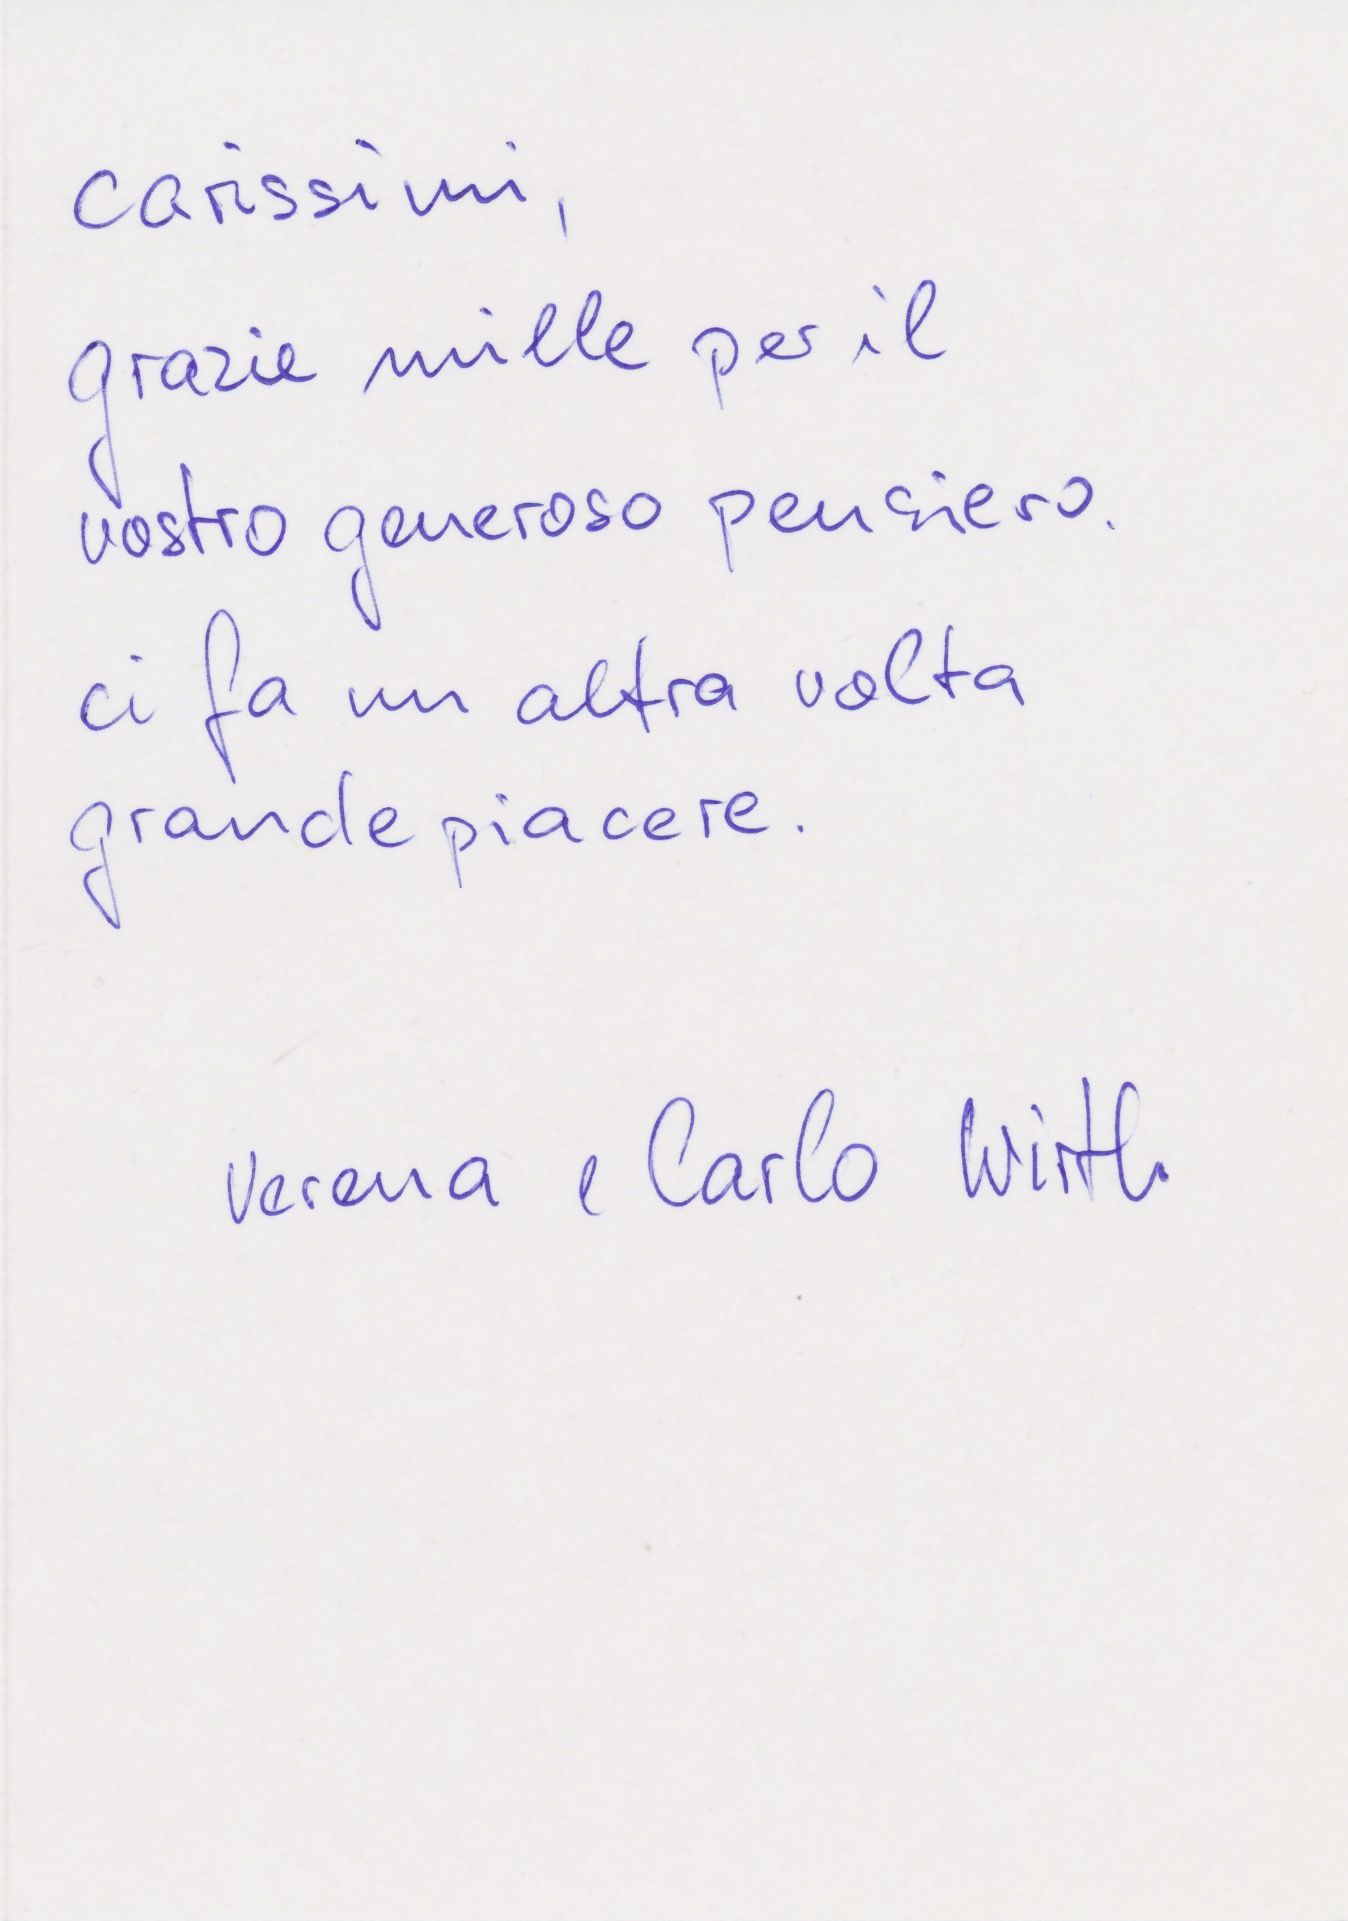 Carissimi,
grazie mille per il
vostro generoso pensiero.
ci fa un altra volta
grande piacere.
Verena e Carlo Wirth.